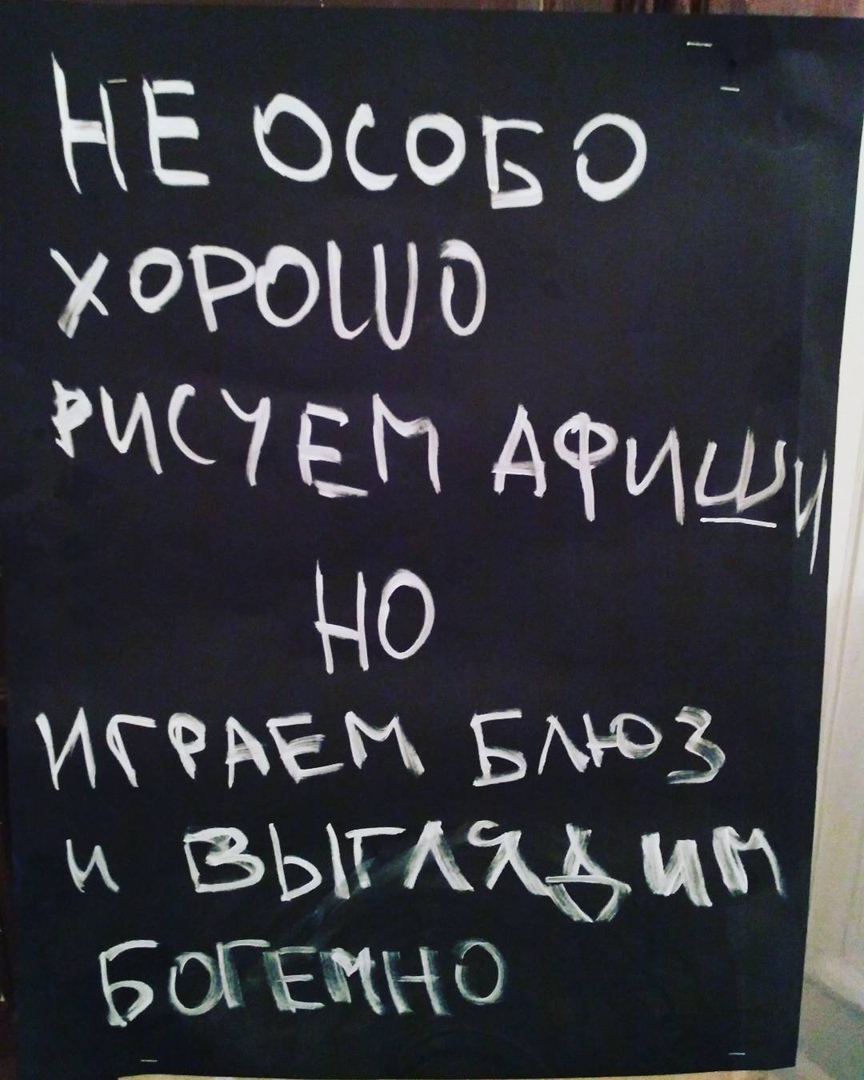 НЕ ОСОБО
ХОРОШО
РИСУЕМ АФИШИ
НО
ИГРАЕМ БЛЮЗ
и ВЫГЛЯДИМ
БОГЕМНО